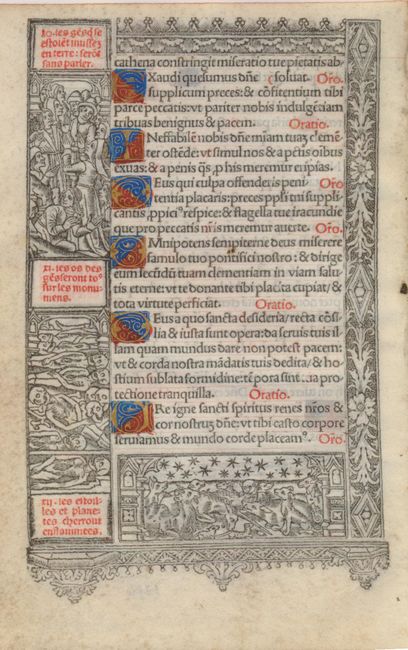 10. les gẽs q̃ se
estoiẽt mussez
en terre: serõt
sans parler.
cathena constringit miseratio tue pietatis ab
Xaudi quesumus dñe ⸿ soluat. Oro.
supplicum preces: & cõfitentium tibi
parce peccatis: vt pariter nobis indulgẽtiam
tribuas benignus & pacem. Oratio.
Neffabilẽ nobis dñe miam tuaʒ clemẽ
ter ostẽde: vt simul nos & a pctis oibus
exuas: & a penis qs̃ ꝓ his meremur eripias.
Eus qui culpa offenderis peni Oro
tentia placaris: preces ppli tui suppli
cantis ,ppici⁹ respice: & flagella tue iracundie
que pro peccatis nr̃is meremur auerte. Oro.
Mnipotens sempiterne deus miserere
famulo tuo pontifici nostro: & dirige
eum secũdũ tuam clementiam in viam salu
tis eterne: vt te donante tibi placita cupiat/ &
tota virtute perficiat. Oratio.
XI. les os des
gẽs seront to⁹
sur les monu
mens.
Eus a quo sancta desideria/ recta cõsi
lia & iusta sunt opera: da seruis tuis il
lam quam mundus dare non potest pacem:
vt & corda nostra mãdatis tuis dedita/ & ho
stium sublata formidine: tẽpora sint tua pro
tectione tranquilla. Oratio.
Re igne sancti spiritus renes nr̃os &
cor nostruʒ dñe: vt tibi casto corpore
seruiamus & mundo corde placeam⁹. Oro.
XII. les estoil
les et plane
tes cherront
enflammees.